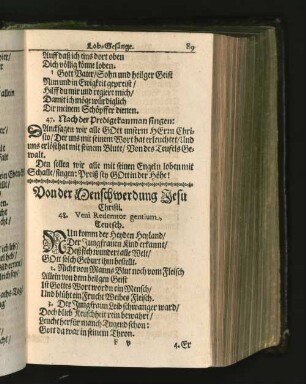 Lob-Gesänge. 89
Auff daß ich ins dort oben
Dich völlig könne loben.
Gott Vater/ Sohn und heilger Geist
Nun und in Ewigkeit gepreist/
Hilff du mir und regiere mich/
Damit ich mög würdiglich
Dir meinem Schöpffer dienen.
47. Nach der Predigt kan man singen:
DAncksagen wir alle GOtt unserm HErrn Chri-
sto/ Der uns mit seinem Wort hat erleuchtet/ Und
uns erlöst hat mit seinem Blute/ Von des Teufels Ge-
walt.
Den sollen wir alle mit seinen Engeln loben mit
Schalle/ singen: Preiß sey GOtt in der Höhe!
Von der Menschwerdung Jesu
Christi.
48. Veni Redemtor gentium.,
Teutsch.
NUn komm der Heyden Heyland/
Der Jungfrauen Kind erkannt/
Deß sich wundert alle Welt/
GOtt solch Geburt ihm bestellt.
2. Nicht von Manns Blut noch vom Fleisch
Allein von dem heilgen Geist
Ist Gottes Wort wordn ein Mensch/
Und blüht ein Frucht Weibes Fleisch.
3. Der Jungfrau Leib schwanger ward/
Doch blieb Keuschheit rein bewahrt/
Leucht herfür manch Tugend schon:
Gott da war in seinem Thron.
F 4. Er